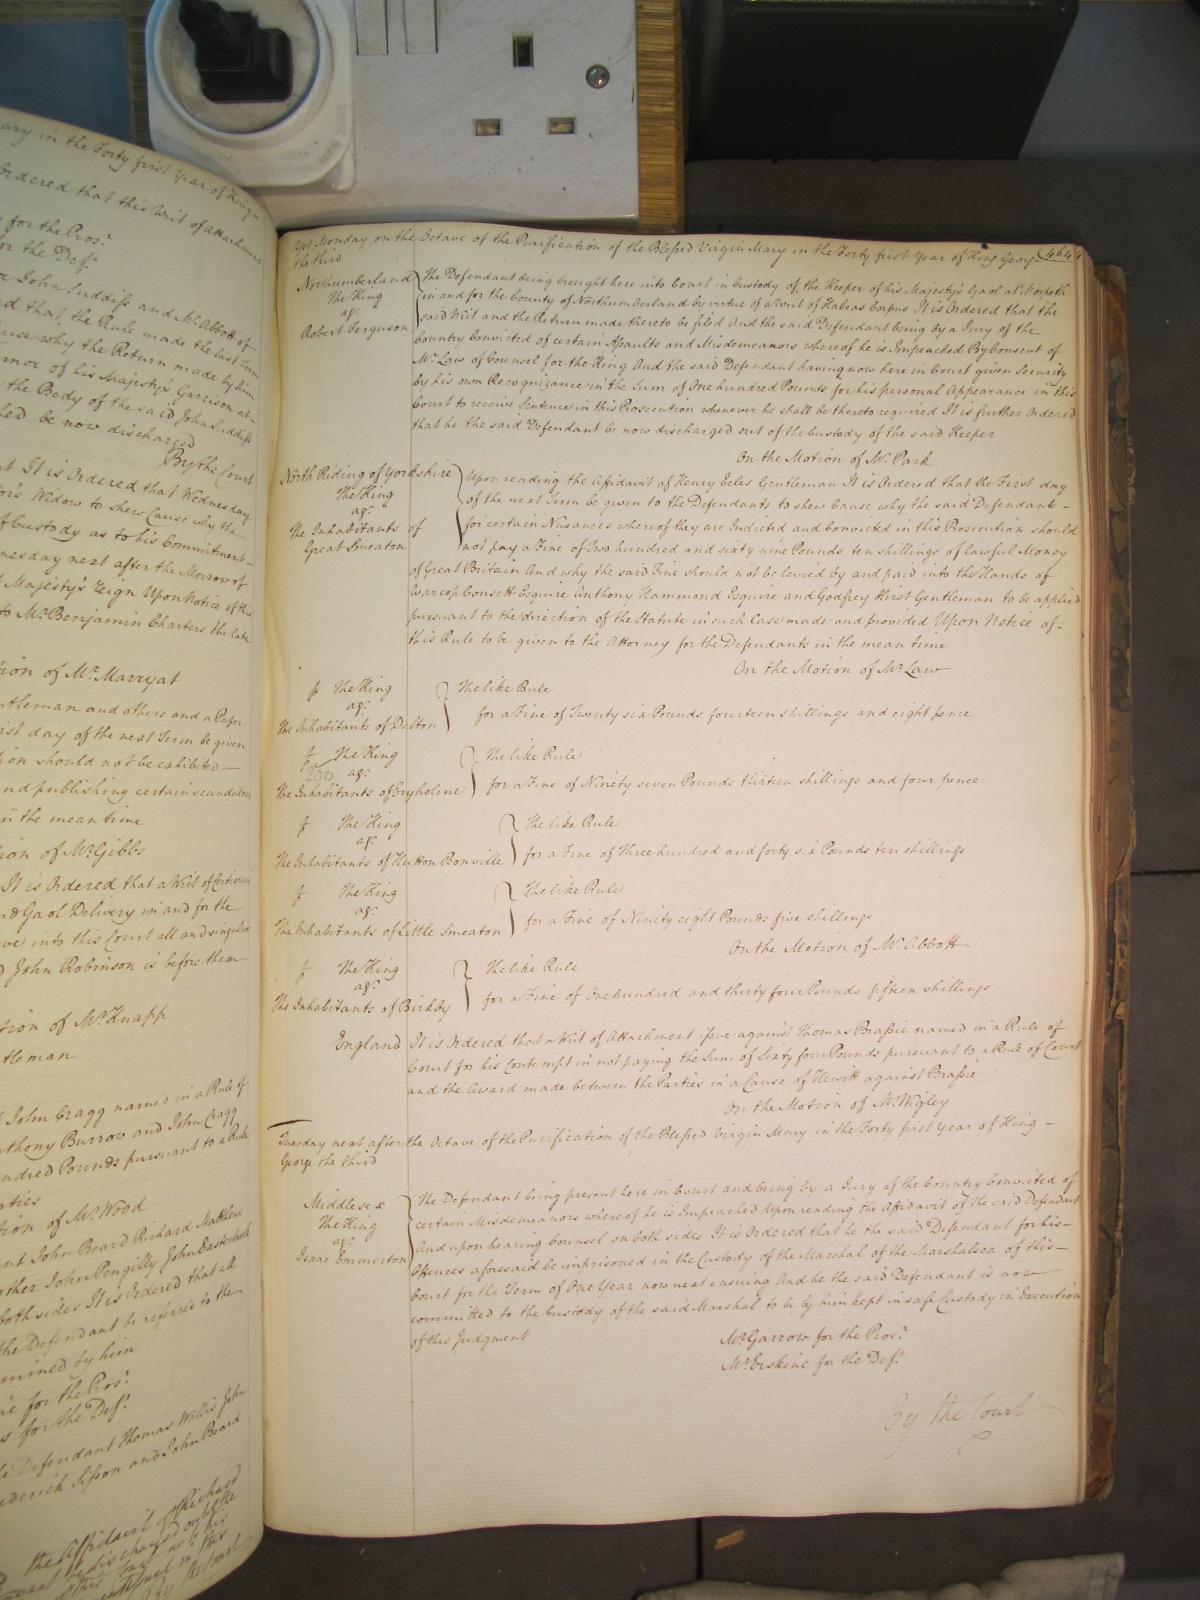 ary in the Forty first Year of King
Ordered that this Writ of Attachment
for the Pros.r
for the Def.t
John Suddiss and Mr. Abbott of
d that the Rule made the last Term
cause why the Return made by him
ernor of his Majesty's Garrison at
the Body of the said John Suddiss
be now discharged
By the Court
It is Ordered that Wednesday
Widow to shew Cause why the
of Custody as to his Commitment
nesday next after the Morrow of
Majesty's Reign Upon Notice of this
to Mr. Benjamin Charters the late
tion of Mr. Marryat
tleman and others and a Paper
ist day of the next Term be given
ion should not be exhibited
nd publishing certain scandalous
in the mean time
ion of Mr. Gibbs
It is Ordered that a Writ of Certiorari
nd Gaol Delivery in and for the
ve into this Court all and singular
John Robinson is before them
tion of Mr. Knapp
tleman
John Cragg named in a Rule of
nthony Burrow and John Cragg
undred Pounds pursuant to a Rule
arties
tion of Mr. Wood
nt John Beard Richard Matthew
other John Pengilly John Easterbrook
both sides It is Ordered that all
the Defendant be referred to the
mined by him
for the Pros.r
for the Def.t
Defendant Thomas Willis John
ederick Sisson and John Beard
the Affidavit of Richard
464
Yet Monday on the Octave of the Purification of the Blessed Virgin Mary in the Forty first Year of King George
the third
Northumberland
The King
ag.t
Robert Ferguson
The Defendant being brought here into Court in Custody of the Keeper of his Majesty's Gaol at Morpeth
in and for the County of Northumberland by virtue of a Writ of Habeas Corpus It is Ordered that the
said Writ and the Return made thereto be filed And the said Defendant being by a Jury of the
Country Convicted of certain Assaults and Misdemeanors whereof he is Impeached By Consent of
Mr. Law of Counsel for the King And the said Defendant having now here in Court given Security
by his own Recognizance in the Sum of One hundred Pounds for his personal Appearance in this
Court to receive Sentence in this Prosecution whenever he shall be thereto required It is further Ordered
that he the said Defendant be now discharged out of the Custody of the said Keeper
On the Motion of Mr. Park
North Riding of Yorkshire
The King
ag.t
The Inhabitants of
Great Smeaton
Upon reading the Affidavit of Henry Eeles Gentleman It is Ordered that the First day
of the next Term be given to the Defendants to shew Cause why the said Defendants
for certain Nusances whereof they are Indicted and Convicted in this Prosecution should
not pay a Fine of Two hundred and sixty nine Pounds ten shillings of lawful Money
of Great Britain And why the said Fine should not be levied by and paid into the Hands of
Warcop Consett Esquire Anthony Hammond Esquire and Godfrey Hirst Gentleman to be applied
pursuant to the direction of the Statute in such Case made and provided Upon Notice of
this Rule to be given to the Attorney for the Defendants in the mean time
On the Motion of Mr. Law
The King
ag.t
The Inhabitants of Dalton
The like Rule
for a Fine of Twenty six Pounds fourteen shillings and eight pence
The King
ag.t
The Inhabitants of Eryholme
The like Rule
for a Fine of Ninety seven Pounds thirteen shillings and four pence
The King
ag.t
The Inhabitants of Hutton Bonville
The like Rule
for a Fine of Three hundred and forty six Pounds ten shillings
The King
ag.t
The Inhabitants of Little Smeaton
The like Rule
for a Fine of Ninety eight Pounds five shillings
On the Motion of Mr. Abbott
The King
ag.t
The Inhabitants of Birkby
The like Rule
for a Fine of One hundred and thirty four Pounds fifteen shillings
England
It is Ordered that a Writ of Attachment issue against Thomas Brassie named in a Rule of
Court for his Contempt in not paying the Sum of Sixty four Pounds pursuant to a Rule of Court
and the Award made between the Parties in a Cause of Hewitt against Brassie
On the Motion of Mr. Wigley
Tuesday next after the Octave of the Purification of the Blessed Virgin Mary in the Forty first Year of King
George the third
Middlesex
The King
ag.t
Isaac Emmerton
The Defendant being present here in Court and being by a Jury of the Country Convicted of
certain Misdemeanors whereof he is Impeached Upon reading the Affidavit of the said Defendant
And upon hearing Counsel on both sides It is Ordered that he the said Defendant for his
Offences aforesaid be imprisoned in the Custody of the Marshal of the Marshalsea of this
Court for the Term of One Year now next ensuing And he the said Defendant is now
committed to the Custody of the said Marshal to be by him kept in safe Custody in Execution
of this Judgment
Mr. Garrow for the Pros.r
Mr. Erskine for the Def.t
By the Court